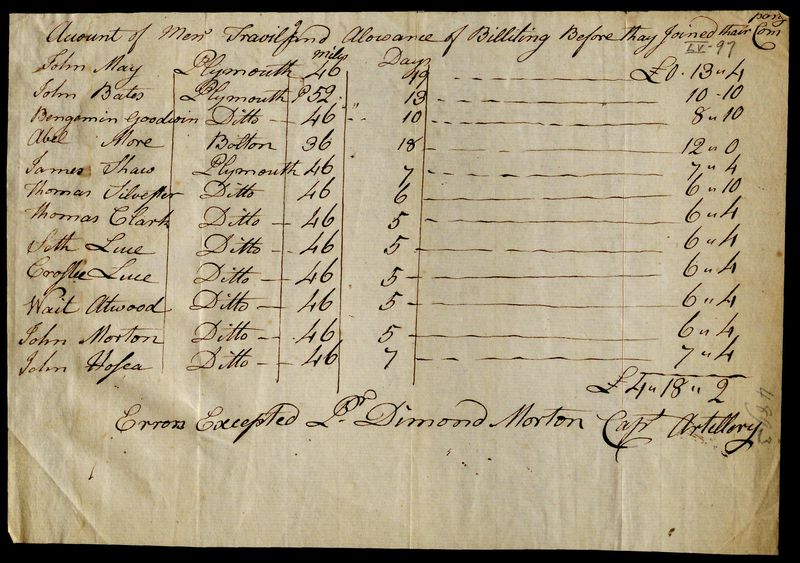 Acount of Mens Travil and Alowance of Billiting Before thay Joined thair Company
LV-97
miles Days
John May Plymouth 46 19 £0 . 13 " 4
John Bates Plymouth 52 13 10 - 10
Bengomin Goodwin Ditto 46 10 8 " 10
Abel More Bolton 36 18 12 " 0
James Shaw Plymouth 46 7 7 " 4
Thomas Silvester Ditto 46 6 6 " 10
Thomas Clark Ditto 46 5 6 " 4
Seth Luce Ditto 46 5 6 " 4
Crosbee Luce Ditto 46 5 6 " 4
Wait Atwood Ditto 46 5 6 " 4
John Morton Ditto 46 5 6 " 4
John Hosea Ditto 46 7 7 " 4
£4 " 18 " 2
Errors Excepted Pr Dimond Morton Capt Artillery